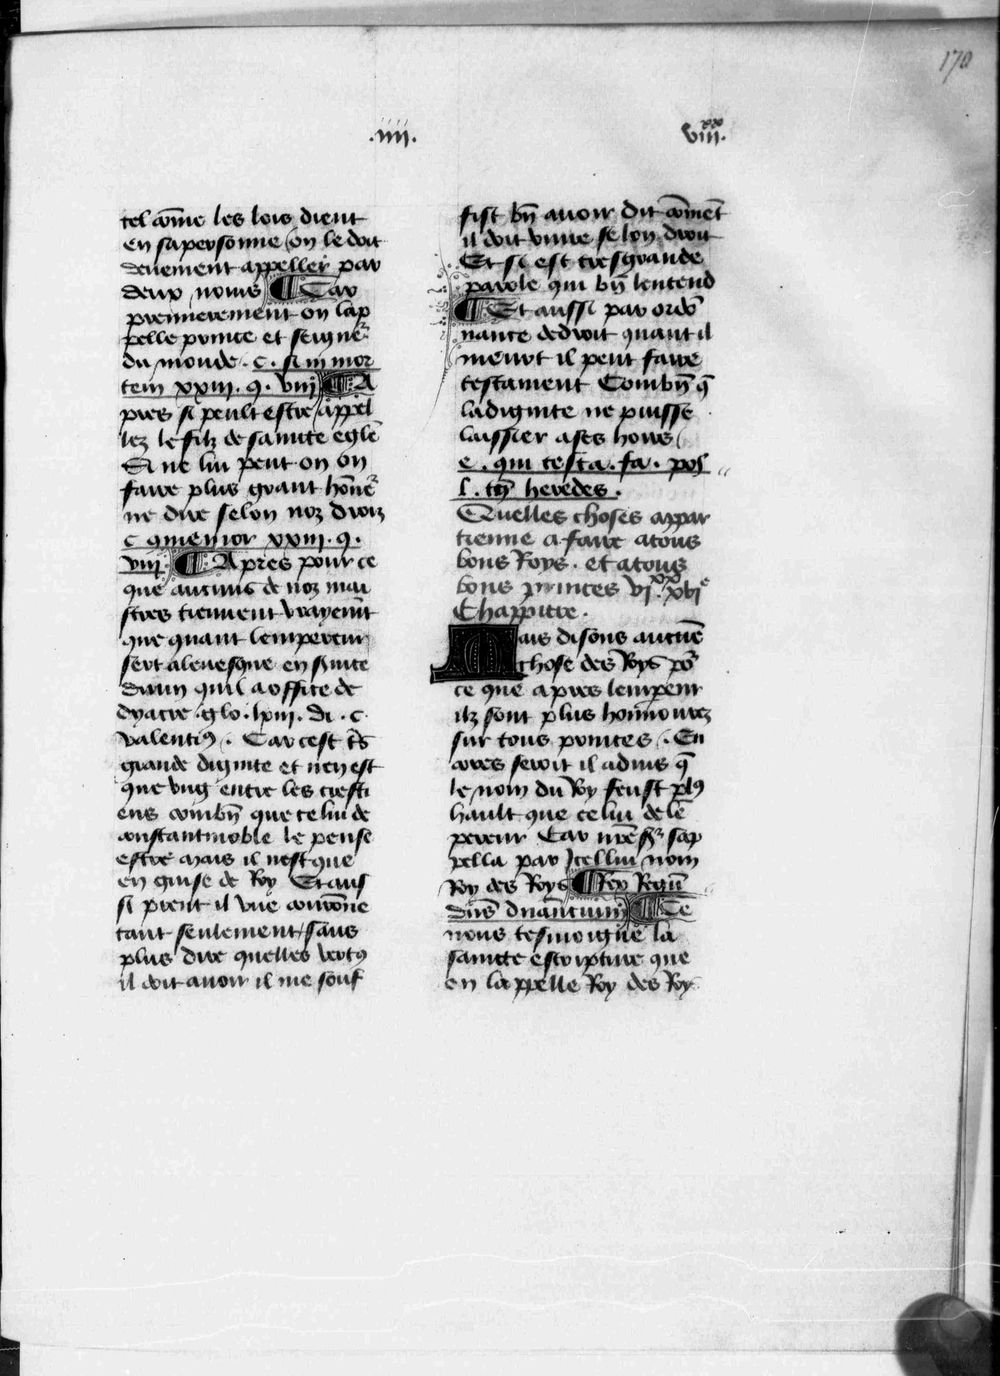 170
.iiii.
viii.xx
tel cõme les lois dient
en sa personne on le doit
deuement appeller par
deux noms ¶ Car
premierement on lap
pelle prince et seignẽr
du monde . c . si in mor
tem xxiii. q. viii ¶ A
pres si peult estre appel
lez le filz de saincte eglẽ
Si ne lui peut on on
faire plus grant hõnẽr
ne dire selon noz droiz
c quienior xxiii. q.
viii. ¶ Apres pour ce
que aucuns de noz mai
stres tiennent vrayemẽt
que quant lempereur
sert a leuesque en saincte
dann quil a office de
dyacre . glo . lxiii. di . c .
valentiꝰ . Car cest trẽs
grande dignite et nen est
que vng entre les cresti
ens combñ que celui de
constantinoble le pense
estre mais il nest que
en guise de Roy Et aus
si prent il vne courõne
tant seulement / sans
plus dire quelles vertꝰ
il doit auoir il me souf
fist bñ auoir dit cõment
il doit viure selon droit
Et si est tresgrande
parole qui bñ lentend
¶ Et aussi par ordõ
nance de droit quant il
meurt il peut faire
testament Combñ q̃
la dignite ne puisse
laissier a ses hoirs
e . qui testa . fa . poss
l . tñ heredes .
Quelles choses appar
tienne a faire a tous
bons Roys . et a tous
bons princes vi.xx xvi e
Chappitre .
Mais disons aucuẽ
chose des Roys põr
ce que apres lempeur
ilz sont plus honnourez
sur tous princes . En
cores seroit il aduis q̃
le nom du Roy feust plꝰ
hault que celui de lẽ
pereur Car nrẽ sr̃ sap
pella par Icellui nom
Roy des Roys ¶ Rex Regũ
dñs dñancium ¶ Ce
nous tesmoigne la
saincte escripture que
en lappelle Roy des Roys